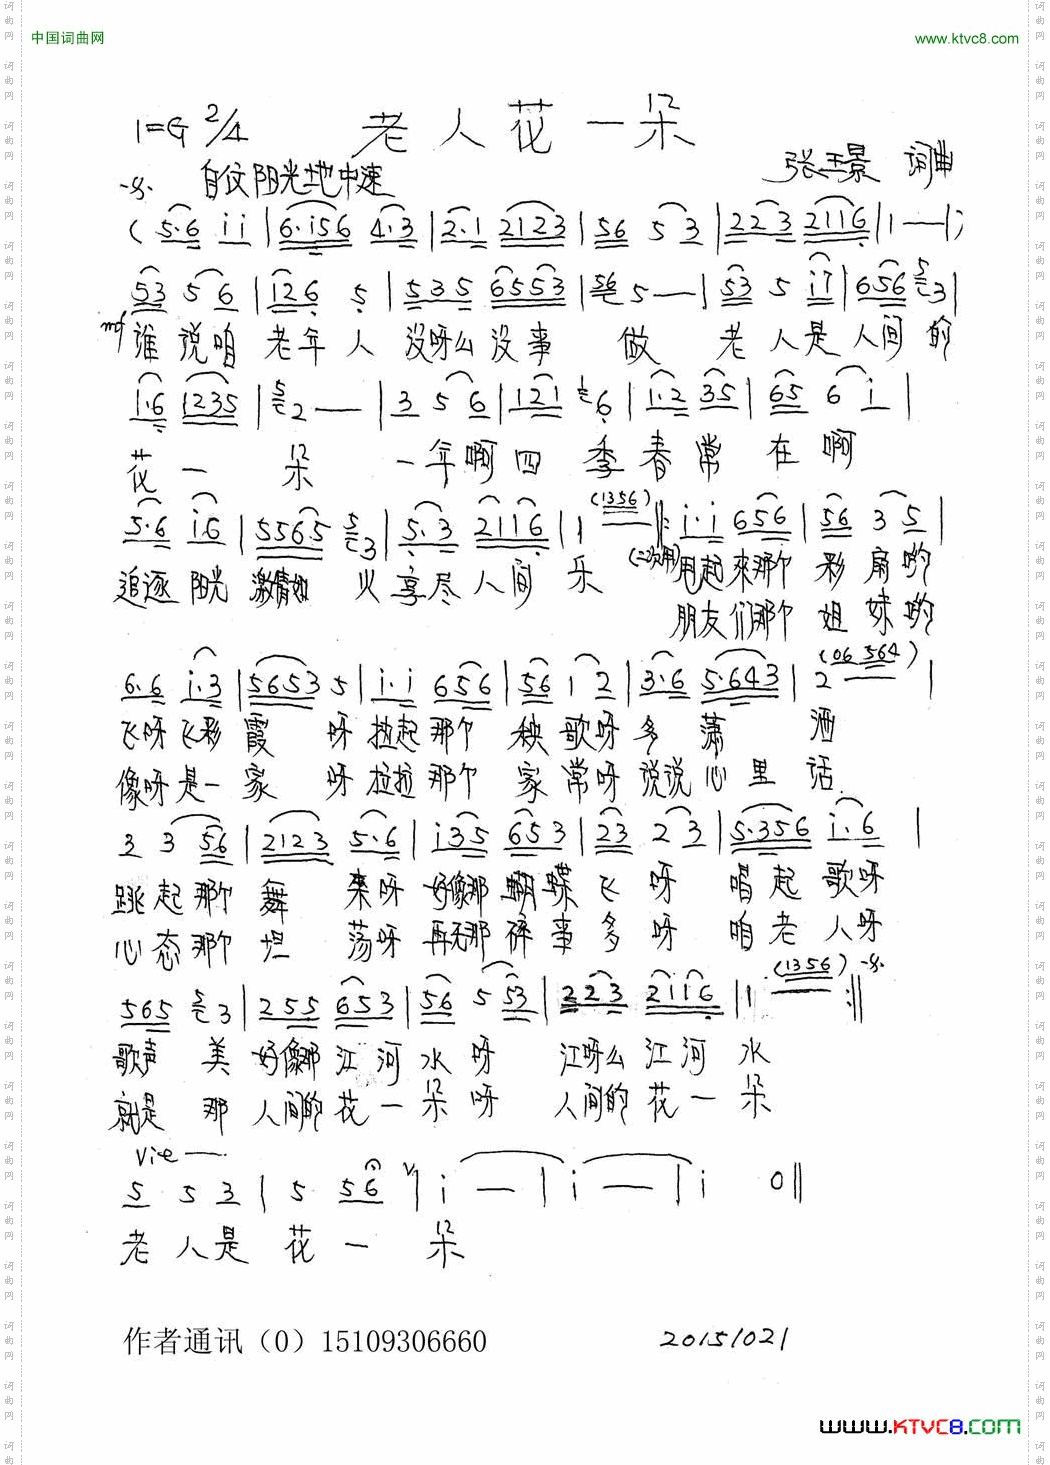 中国词曲网
www.ktvc8.com
1=G 2/4 老人花一朵
张玉景 词曲
自由阳光地中速
(5·6 i i | 6·i56 4·3 | 2·1 2123 | 56 5 3 | 223 2116 | 1 — | ;
53 5 6 | i26 5 | 535 6553 | 56 5 — | 53 5 i7 | 656 5 3 |
mf 谁说咱老年人没呀么没事做老人是人间的
1·6 1235 | 5 2 — | 3 5 6 | 121 1 6 | 1·2 35 | 65 6 i |
花一朵一年啊四季春常在啊
5·6 i·6 | 5565 5 3 | 5·3 2116 | 1 (1356) ‖: i·i 656 | 56 3 5 |
追逐阳光激情如火享尽人间乐 甩起来那个彩扇哟
朋友们那个姐妹哟
6·6 i·3 | 5653 5 | i·i 656 | 56 1 2 | 3·6 5·643 | 2 — (06 564) |
飞呀飞彩霞呀扭起那个秧歌呀多潇洒
像呀是一家呀拉拉那个家常呀说说心里话
3 3 56 | 2123 5·6 | i35 653 | 23 2 3 | 5·356 i·6 |
跳起那个舞来呀好像那蝴蝶飞呀唱起歌呀
心态那个坦荡呀再无那碎事多呀咱老人呀
565 5 3 | 255 653 | 56 5 53 | 223 2116 | 1 — (1356) :‖
歌声美好像那江河水呀江呀么江河水
就是那人间的花一朵呀人间的花一朵
5 5 3 | 5 56 | i — | i — | i 0 ‖
老人是花一朵
作者通讯（0）15109306660 20151021
www.KTVC8.COM